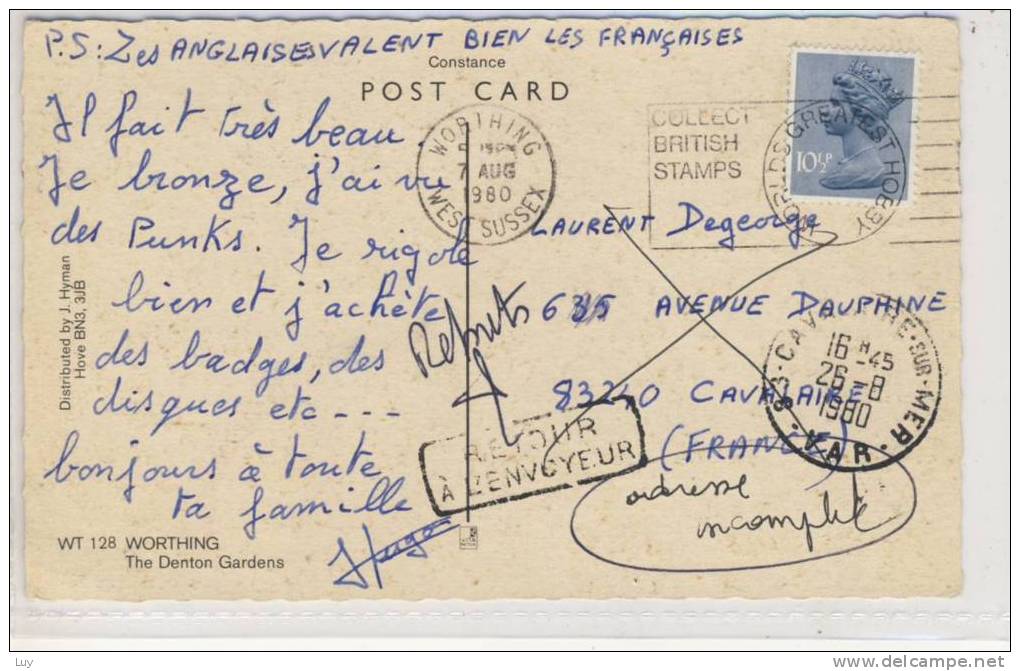 P.S: Les ANGLAISES VALENT BIEN LES FRANÇAISES
Constance
POST CARD
Il fait très beau.
Je bronze, j'ai vu
des Punks. Je rigole
bien et j'achète
des badges, des
disques etc ---
bonjours à toute
ta famille
Hugo
WT 128 WORTHING
The Denton Gardens
Distributed by J. Hyman
Hove BN3, 3JB
WORTHING
7 AUG
1980
WEST SUSSEX
COLLECT
BRITISH
STAMPS
WORLDS GREATEST HOBBY
10½P
LAURENT Degeorge
635 AVENUE DAUPHINE
83240 CAVALAIRE
(FRANCE)
Rebuts
RETOUR
À L'ENVOYEUR
adresse
incomplète
83 - CAVALAIRE-SUR-MER
16 H -45
26 -8
1980
VAR
Luy
www.delcampe.net